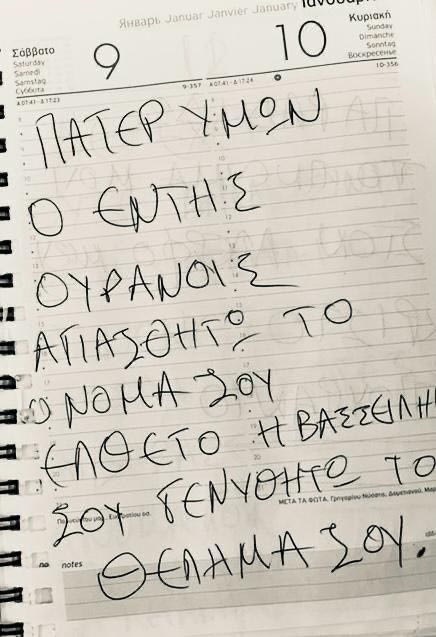 Январь Januar Janvier January Ιανουάριος
Σάββατο
Saturday
Samedi
Samstag
Суббота
9
10
Κυριακή
Sunday
Dimanche
Sonntag
Воскресенье
Α 07:41 - Δ 17:23
9-357
Α 07:41 - Δ 17:24
10-356
ΠΑΤΕΡ ΥΜΩΝ
Ο ΕΝΤΗΣ
ΟΥΡΑΝΟΙΣ
ΑΓΙΑΣΘΗΤΩ ΤΟ
ΟΝΟΜΑ ΣΟΥ
ΕΛΘΕΤΟ Η ΒΑΣΣΕΙΛΗ
ΣΟΥ ΓΕΝΥΘΗΤΩ ΤΟ
ΜΕΤΑ ΤΑ ΦΩΤΑ, Γρηγορίου Νύσσης, Δομετιανού,
notes
ΘΕΛΗΜΑ ΣΟΥ.